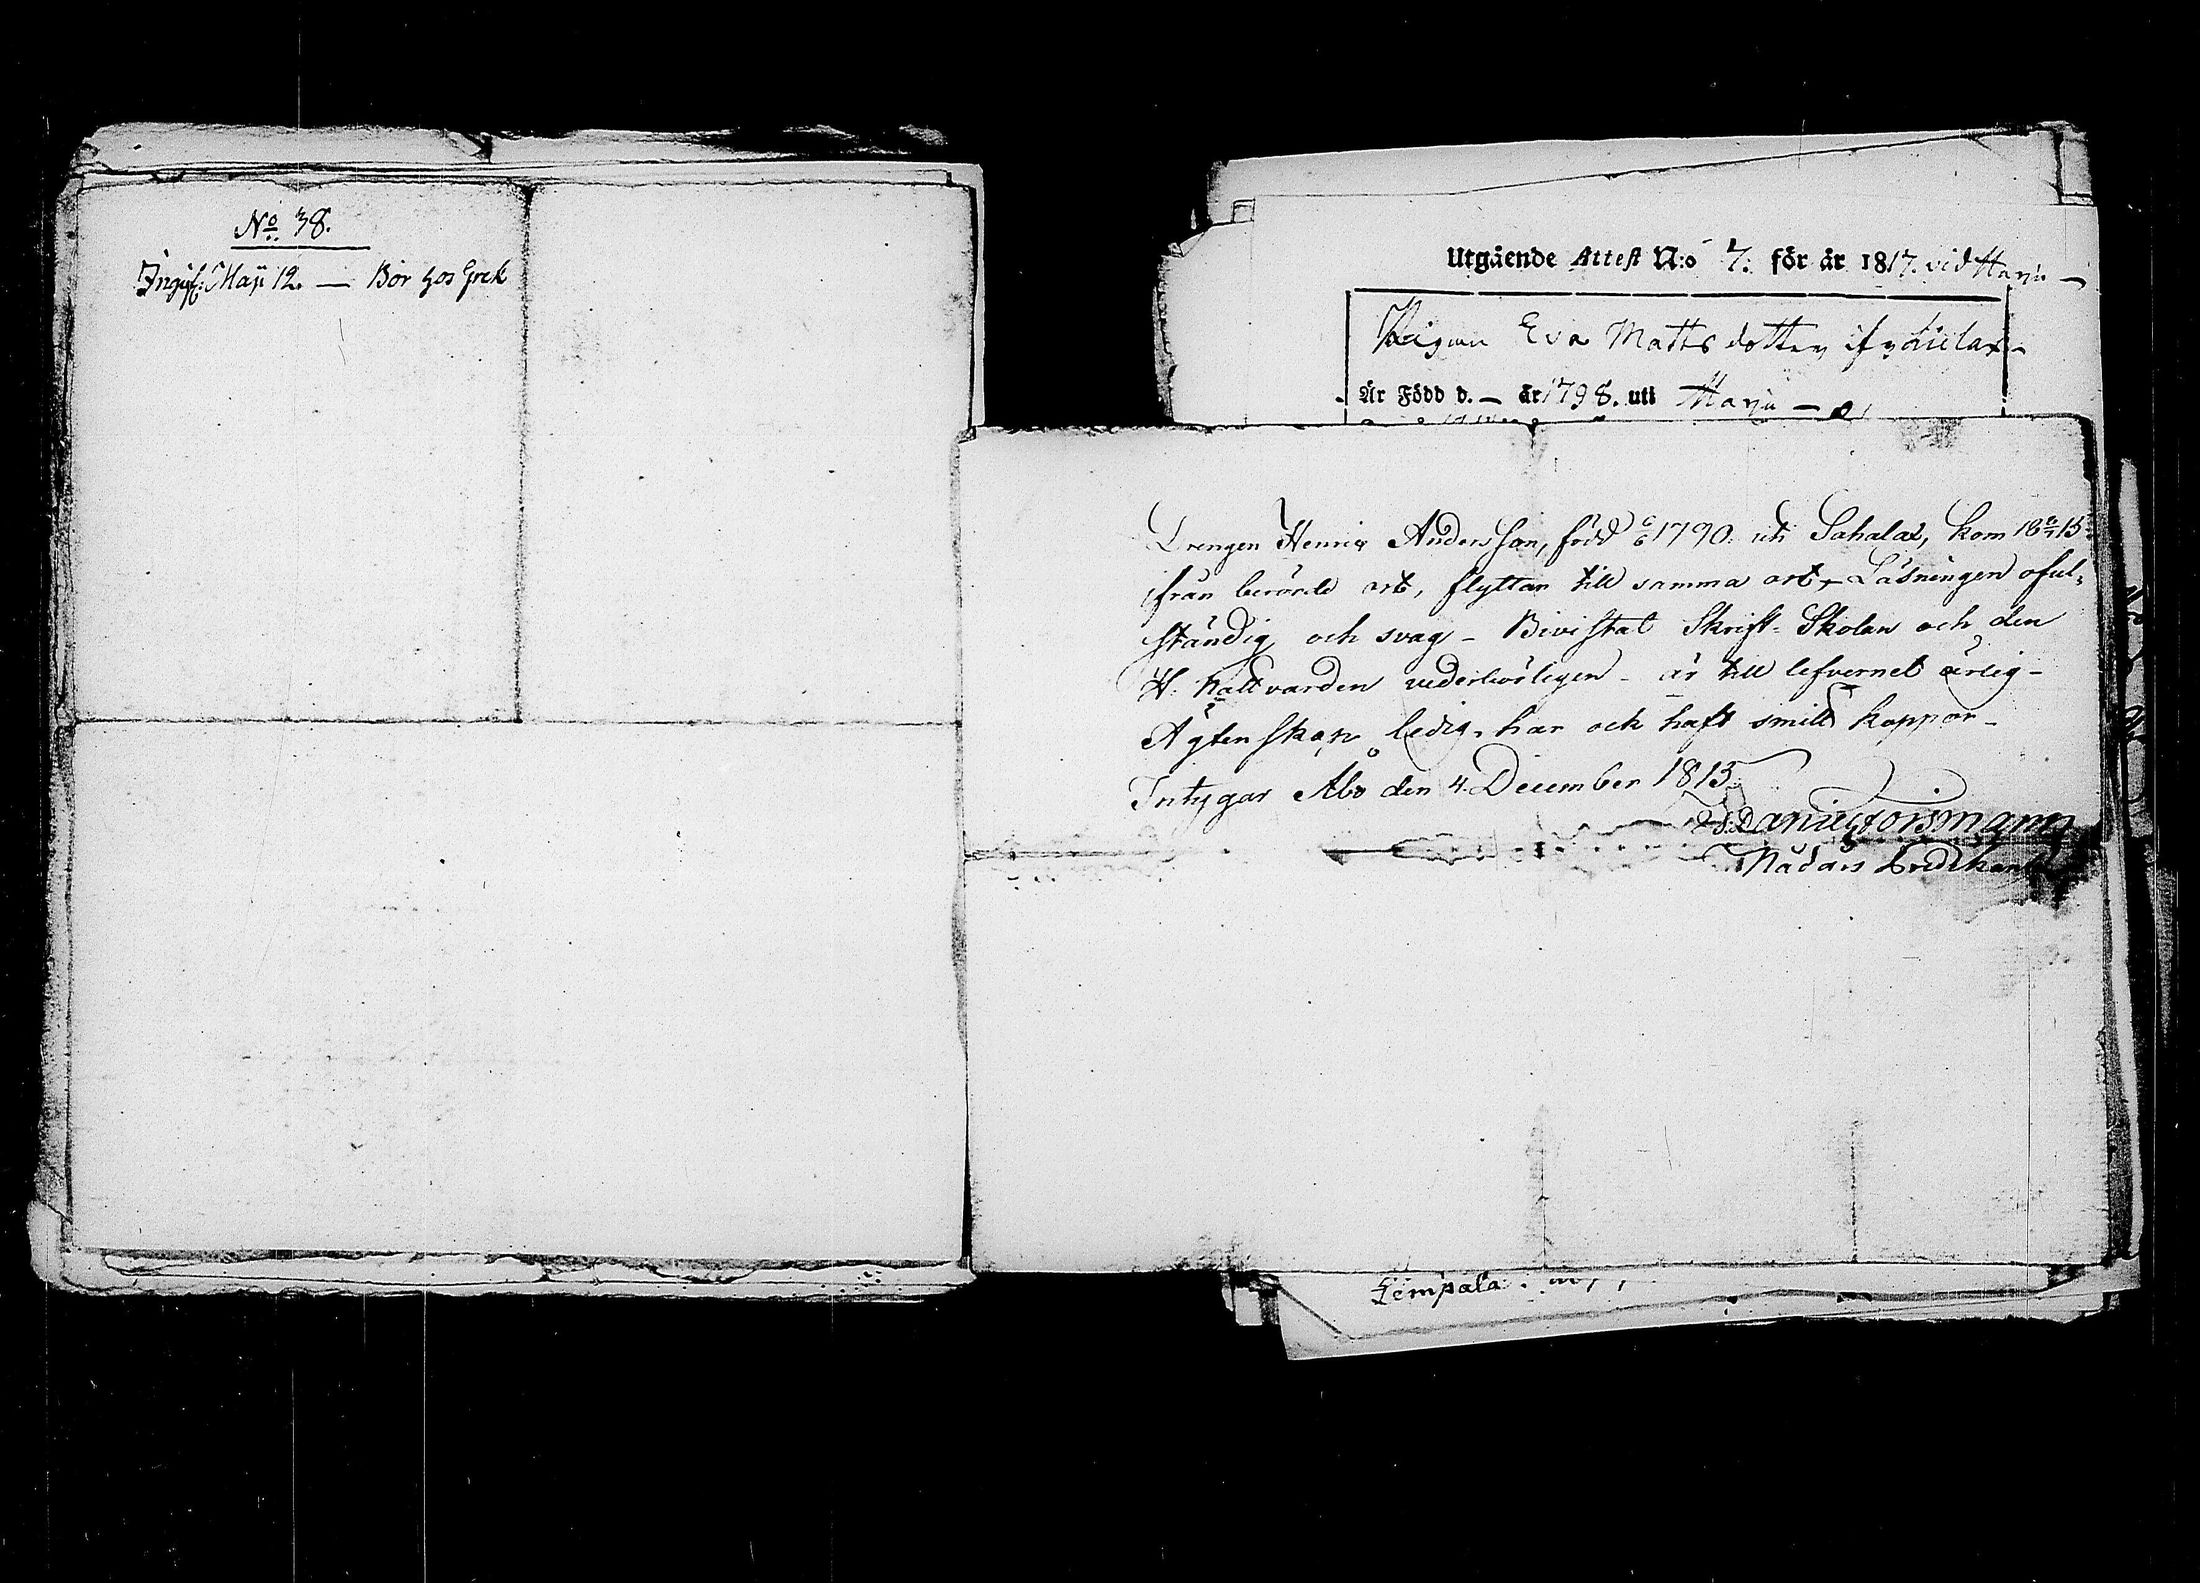 No 38.
Ingif: Maji 12. — Bor hos Grek
Utgående Attest N:o 7. för år 1817. vid Harju —
Pigan Eva Mattsdotter
Är Född d. — år 1798. uti Harju —
Drengen Henric Andersson, född 1790. uti Sahalax, kom
ifrån berörde ort, flyttar till samma ort. Läsningen oful¬
ständig och svag – Bivistat Skrift-Skolan och den
H. Nattvarden vederbörligen – är till lefvernet ärlig –
Ägtenskap ledig, har och haft smitt koppor –
Intygar Åbo den 4. December 1815.
Daniel Forsmann
Nådårs Predikant
Lempälä